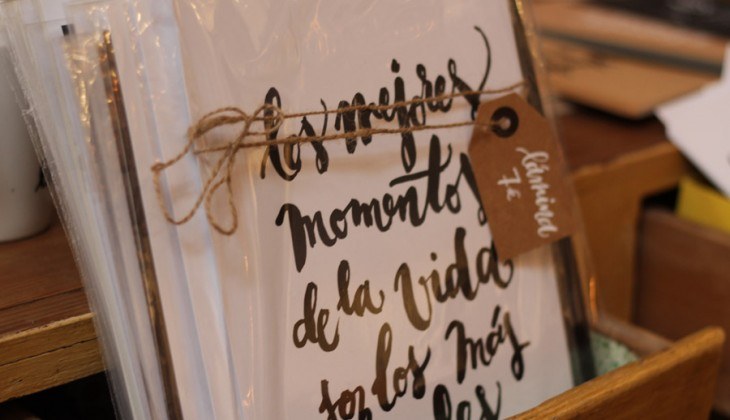 los mejores
momentos
de la vida
son los más
Lámina
7€